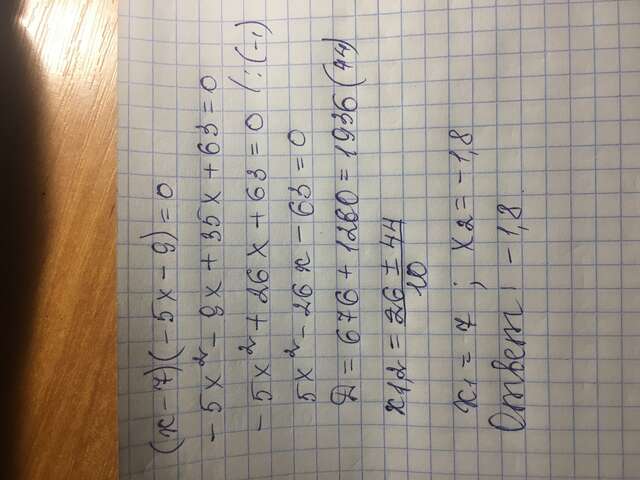 (x-7)(-5x-9)=0
-5x²-9x+35x+63=0
-5x²+26x+63=0 (:(-1)
5x²-26x-63=0
Д=676+1260=1936(44)
x1,2=26±44/10
x1=7; x2=-1,8
Ответ: -1,8